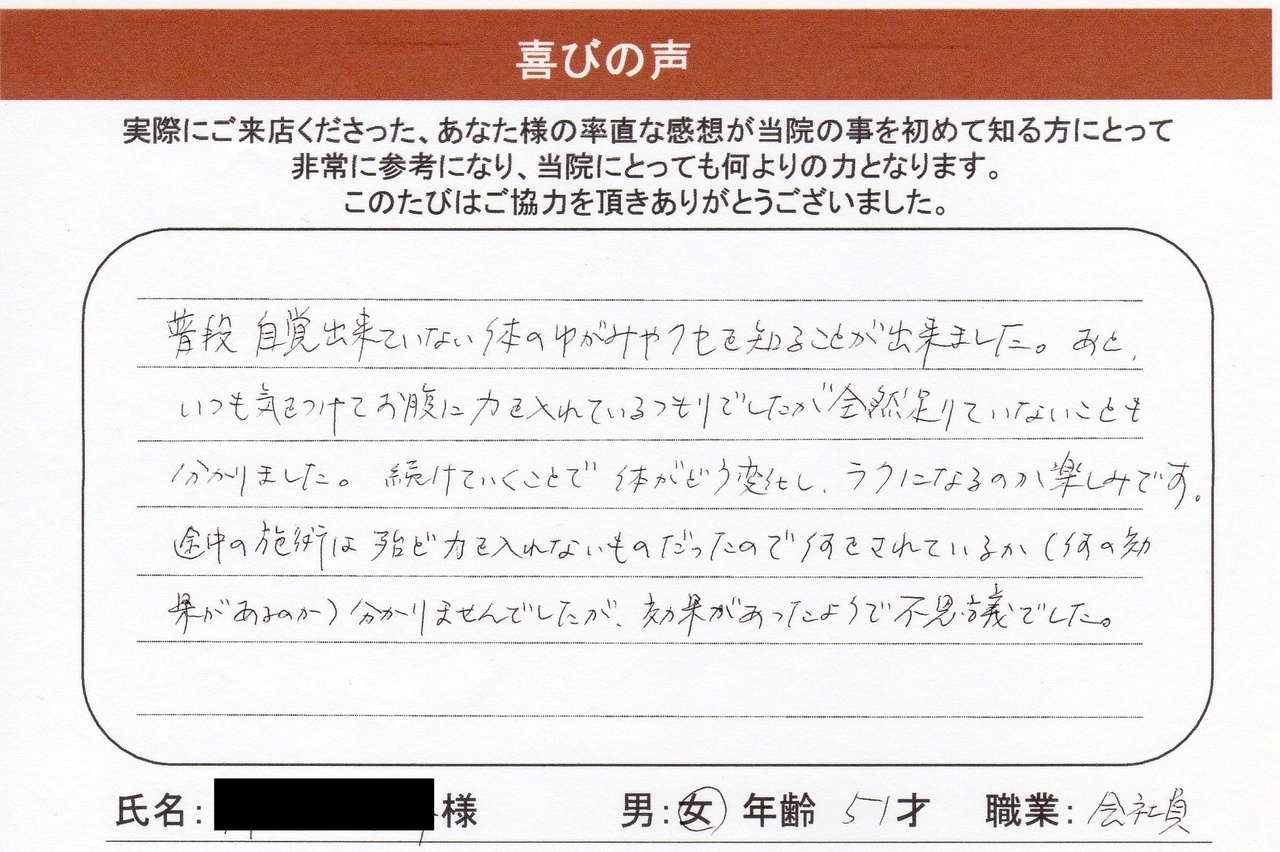 喜びの声
実際にご来店くださった、あなた様の率直な感想が当院の事を初めて知る方にとって
非常に参考になり、当院にとっても何よりの力となります。
このたびはご協力を頂きありがとうございました。
普段 自覚出来ていない体のゆがみやクセを知ることが出来ました。あと、
いつも気をつけてお腹に力を入れているつもりでしたが全然足りていないことも
分かりました。続けていくことで体がどう変化し、ラクになるのか楽しみです。
途中の施術は殆ど力を入れないものだったので何をされているか(何の効
果があるのか)分かりませんでしたが、効果があったようで不思議でした。
氏名: 様 男:女 年齢 51才 職業: 会社員